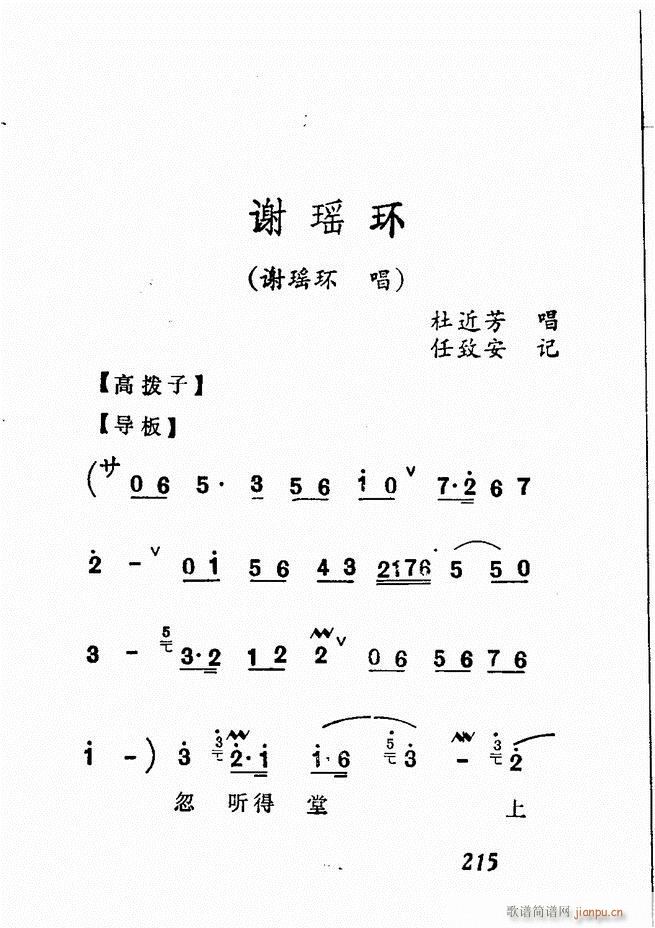 谢瑶环
(谢瑶环 唱)
杜近芳 唱
任致安 记
【高拨子】
【导板】
(サ 0 6 5· 3 5 6 i 0 ∨ 7·2̇ 6 7
2̇ - ∨ 0 i 5 6 4 3 2176 5 5 0
3 - 5 3·2 1 2 2 ∨ 0 6 5 6 7 6
i -) 3̇ 3̇ 2̇·i i·6 5̇ 3̇ - 3̇ 2̇
忽 听得 堂 上
215
歌谱简谱网 jianpu.cn